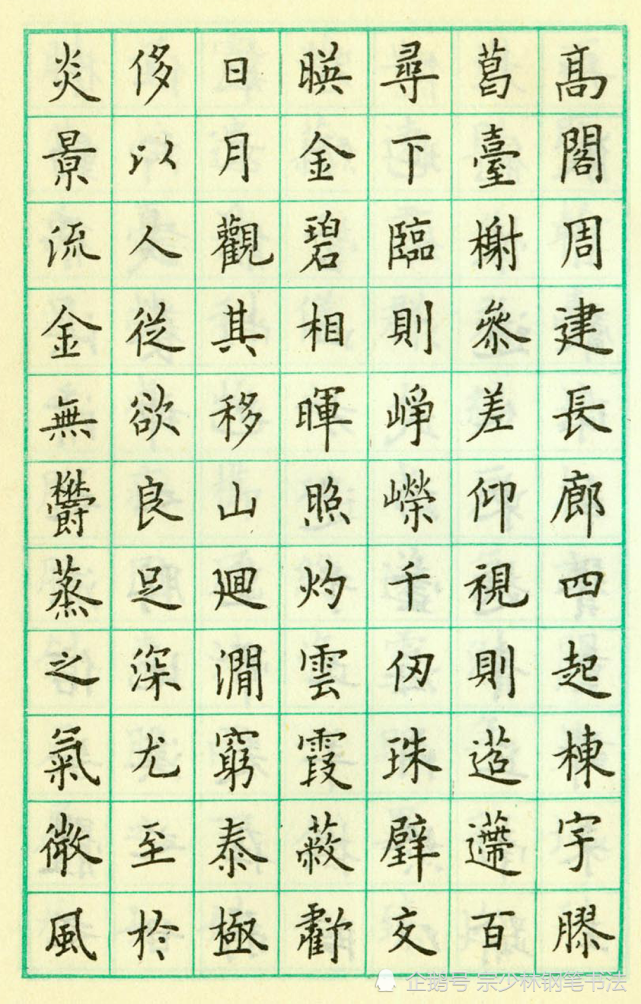 髙閣周建長廊四起棟宇膠
葛臺榭叅差仰視則迢遰百
尋下臨則崢嶸千仞珠璧交
暎金碧相暉照灼雲霞蔽虧
日月觀其移山廻澗窮泰極
侈以人從欲良足深尤至於
炎景流金無鬱蒸之氣微風
企鹅号 宗少林钢笔书法